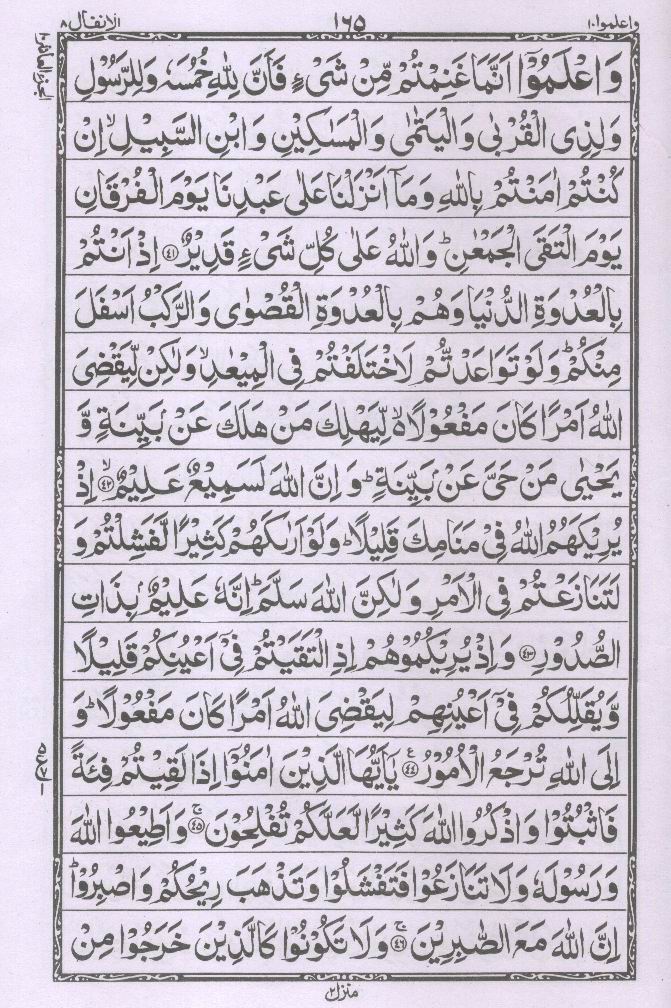 واعلموا ١٠
١٦٥
الانفال ٨
وَاعْلَمُوْٓا اَنَّمَا غَنِمْتُمْ مِّنْ شَیْءٍ فَاَنَّ لِلّٰهِ خُمُسَهٗ وَلِلرَّسُوْلِ
وَلِذِی الْقُرْبٰی وَالْیَتٰمٰی وَالْمَسٰكِیْنِ وَابْنِ السَّبِیْلِ ۙ اِنْ
كُنْتُمْ اٰمَنْتُمْ بِاللّٰهِ وَمَاۤ اَنْزَلْنَا عَلٰی عَبْدِنَا یَوْمَ الْفُرْقَانِ
یَوْمَ الْتَقَی الْجَمْعٰنِ ؕ وَاللّٰهُ عَلٰی كُلِّ شَیْءٍ قَدِیْرٌ ﴿٤١﴾ اِذْ اَنْتُمْ
بِالْعُدْوَةِ الدُّنْیَا وَهُمْ بِالْعُدْوَةِ الْقُصْوٰی وَالرَّكْبُ اَسْفَلَ
مِنْكُمْ ؕ وَلَوْ تَوَاعَدْتُّمْ لَاخْتَلَفْتُمْ فِی الْمِیْعٰدِ ۙ وَلٰكِنْ لِّیَقْضِیَ
اللّٰهُ اَمْرًا كَانَ مَفْعُوْلًا ۙ۬ لِّیَهْلِكَ مَنْ هَلَكَ عَنْۢ بَیِّنَةٍ وَّ
یَحْیٰی مَنْ حَیَّ عَنْۢ بَیِّنَةٍ ؕ وَاِنَّ اللّٰهَ لَسَمِیْعٌ عَلِیْمٌ ﴿٤٢﴾ ۙ اِذْ
یُرِیْكَهُمُ اللّٰهُ فِیْ مَنَامِكَ قَلِیْلًا ؕ وَلَوْ اَرٰىكَهُمْ كَثِیْرًا لَّفَشِلْتُمْ وَ
لَتَنَازَعْتُمْ فِی الْاَمْرِ وَلٰكِنَّ اللّٰهَ سَلَّمَ ؕ اِنَّهٗ عَلِیْمٌۢ بِذَاتِ
الصُّدُوْرِ ﴿٤٣﴾ وَاِذْ یُرِیْكُمُوْهُمْ اِذِ الْتَقَیْتُمْ فِیْۤ اَعْیُنِكُمْ قَلِیْلًا
وَّیُقَلِّلُكُمْ فِیْۤ اَعْیُنِهِمْ لِیَقْضِیَ اللّٰهُ اَمْرًا كَانَ مَفْعُوْلًا ؕ وَ
اِلَی اللّٰهِ تُرْجَعُ الْاُمُوْرُ ﴿٤٤﴾ یٰۤاَیُّهَا الَّذِیْنَ اٰمَنُوْۤا اِذَا لَقِیْتُمْ فِئَةً
فَاثْبُتُوْا وَاذْكُرُوا اللّٰهَ كَثِیْرًا لَّعَلَّكُمْ تُفْلِحُوْنَ ﴿٤٥﴾ ۚ وَاَطِیْعُوا اللّٰهَ
وَرَسُوْلَهٗ وَلَا تَنَازَعُوْا فَتَفْشَلُوْا وَتَذْهَبَ رِیْحُكُمْ وَاصْبِرُوْا ؕ
اِنَّ اللّٰهَ مَعَ الصّٰبِرِیْنَ ﴿٤٦﴾ ۚ وَلَا تَكُوْنُوْا كَالَّذِیْنَ خَرَجُوْا مِنْ
منزل ٢